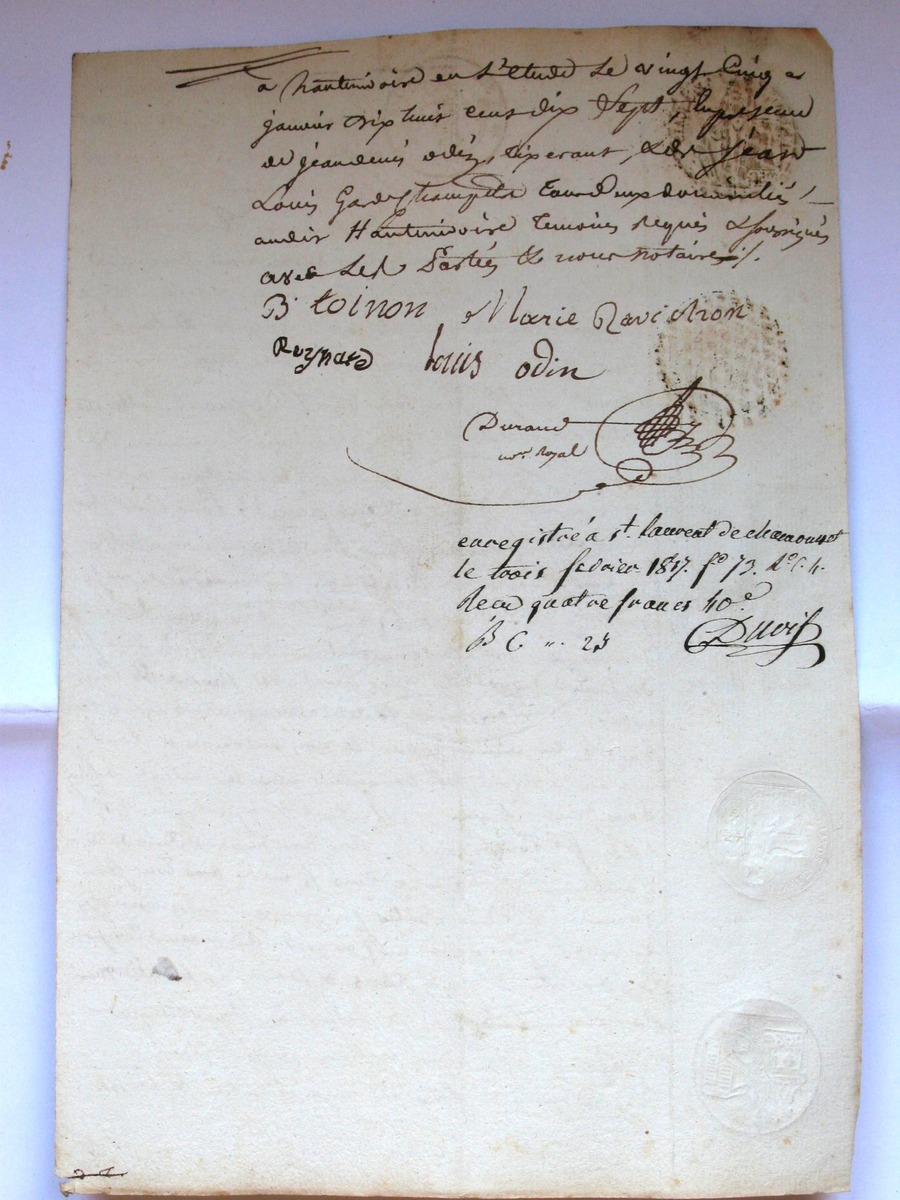 a hauterivoire en l'etude le vingt cinq
janvier dix huit cens dix sept, En presence
de jean denis odin, tisserant, & de jean
Louis Garde champetre tous deux domiciliés
audit Hauterivoire temoins requis & soussignés
avec les parties & nous notaire ./.
Bt toinon Marie Ravichon
Louis odin
Durand
nore Royal
enregistré a st. laurent de chamousset
le trois fevrier 1817. fo 73. Ro C. 4.
Recu quatre francs 40 c
Duvis